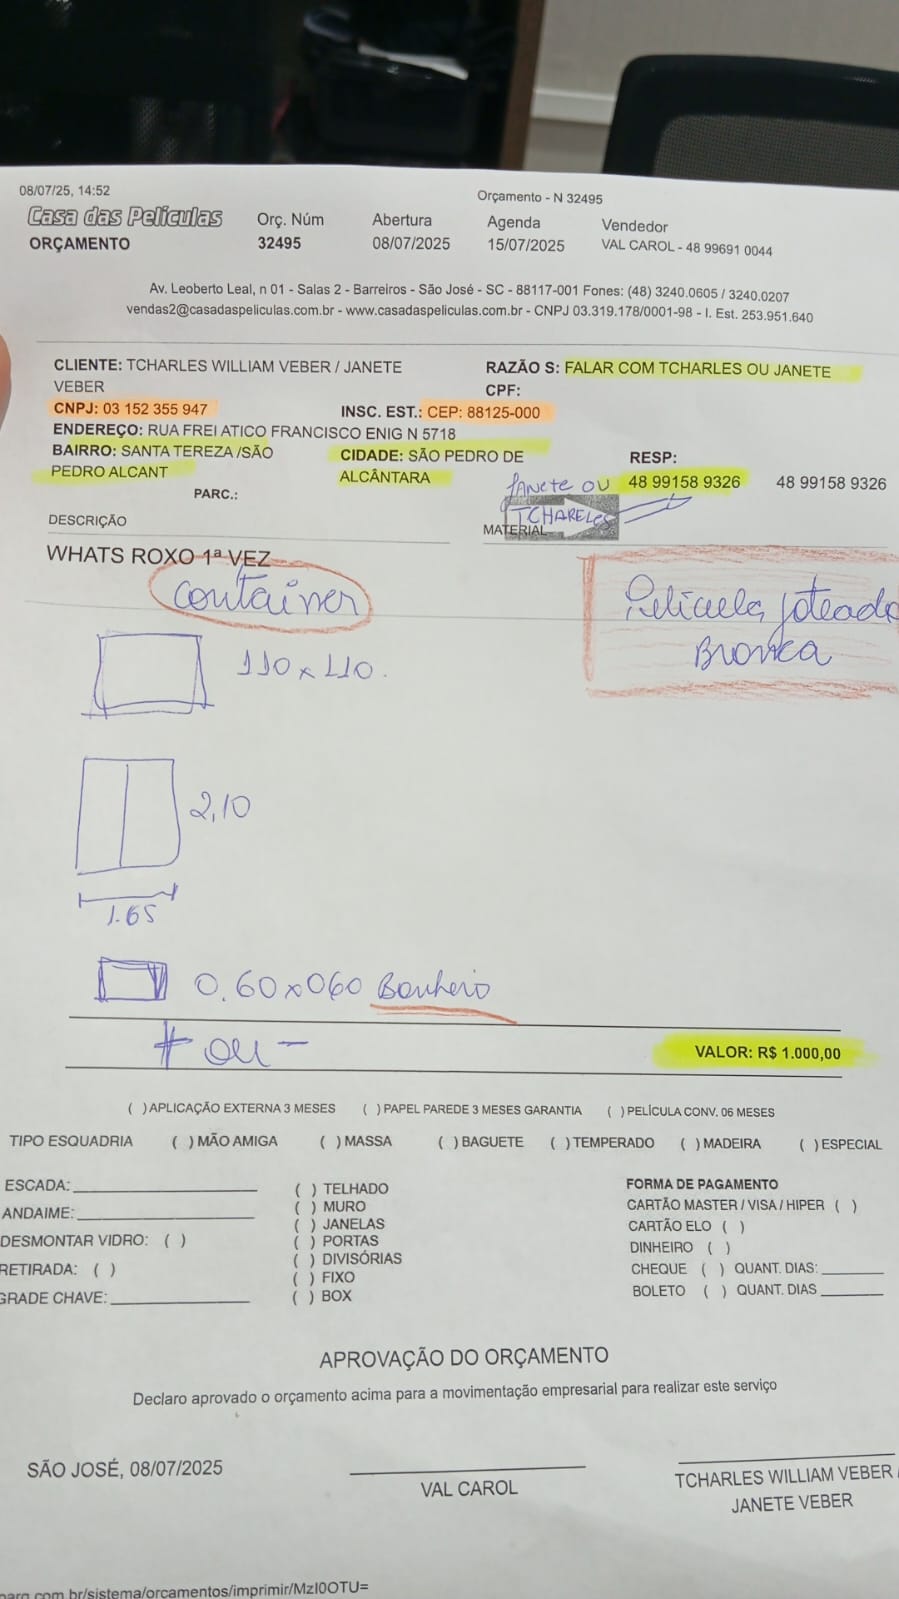 08/07/25, 14:52
Orçamento - N 32495
Casa das Películas Orç. Núm Abertura Agenda Vendedor
ORÇAMENTO 32495 08/07/2025 15/07/2025 VAL CAROL - 48 99691 0044
Av. Leoberto Leal, n 01 - Salas 2 - Barreiros - São José - SC - 88117-001 Fones: (48) 3240.0605 / 3240.0207
vendas2@casadaspeliculas.com.br - www.casadaspeliculas.com.br - CNPJ 03.319.178/0001-98 - I. Est. 253.951.640
CLIENTE: TCHARLES WILLIAM VEBER / JANETE RAZÃO S: FALAR COM TCHARLES OU JANETE
VEBER CPF:
CNPJ: 03 152 355 947 INSC. EST.: CEP: 88125-000
ENDEREÇO: RUA FREI ATICO FRANCISCO ENIG N 5718
BAIRRO: SANTA TEREZA /SÃO CIDADE: SÃO PEDRO DE RESP:
PEDRO ALCANT ALCÂNTARA JANETE OU 48 99158 9326 48 99158 9326
PARC.: TCHARELES
DESCRIÇÃO MATERIAL
WHATS ROXO 1ª VEZ
Container Película joteado
Bronca
110 x 110.
2,10
1.65
0.60x060 Banheiro
+ ou -
VALOR: R$ 1.000,00
( ) APLICAÇÃO EXTERNA 3 MESES ( ) PAPEL PAREDE 3 MESES GARANTIA ( ) PELÍCULA CONV. 06 MESES
TIPO ESQUADRIA ( ) MÃO AMIGA ( ) MASSA ( ) BAGUETE ( ) TEMPERADO ( ) MADEIRA ( ) ESPECIAL
ESCADA: ( ) TELHADO FORMA DE PAGAMENTO
ANDAIME: ( ) MURO CARTÃO MASTER / VISA / HIPER ( )
( ) JANELAS CARTÃO ELO ( )
DESMONTAR VIDRO: ( ) ( ) PORTAS DINHEIRO ( )
RETIRADA: ( ) ( ) DIVISÓRIAS CHEQUE ( ) QUANT. DIAS:
( ) FIXO BOLETO ( ) QUANT. DIAS
GRADE CHAVE: ( ) BOX
APROVAÇÃO DO ORÇAMENTO
Declaro aprovado o orçamento acima para a movimentação empresarial para realizar este serviço
SÃO JOSÉ, 08/07/2025
VAL CAROL TCHARLES WILLIAM VEBER /
JANETE VEBER
parq.com.br/sistema/orcamentos/imprimir/MzI0OTU=